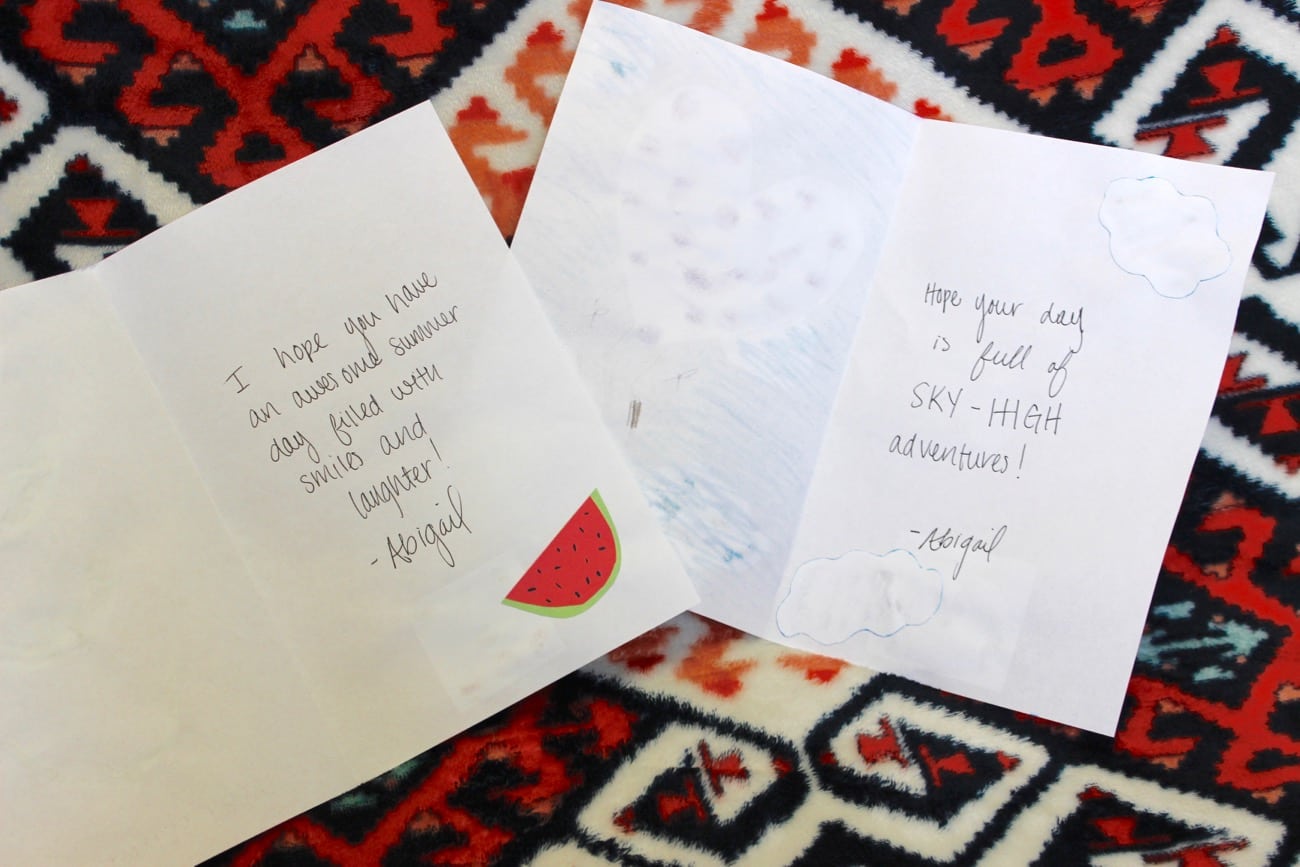 I hope you have
an awesome summer
day filled with
smiles and
laughter!
-Abigail
Hope your day
is full of
SKY-HIGH
adventures!
-Abigail